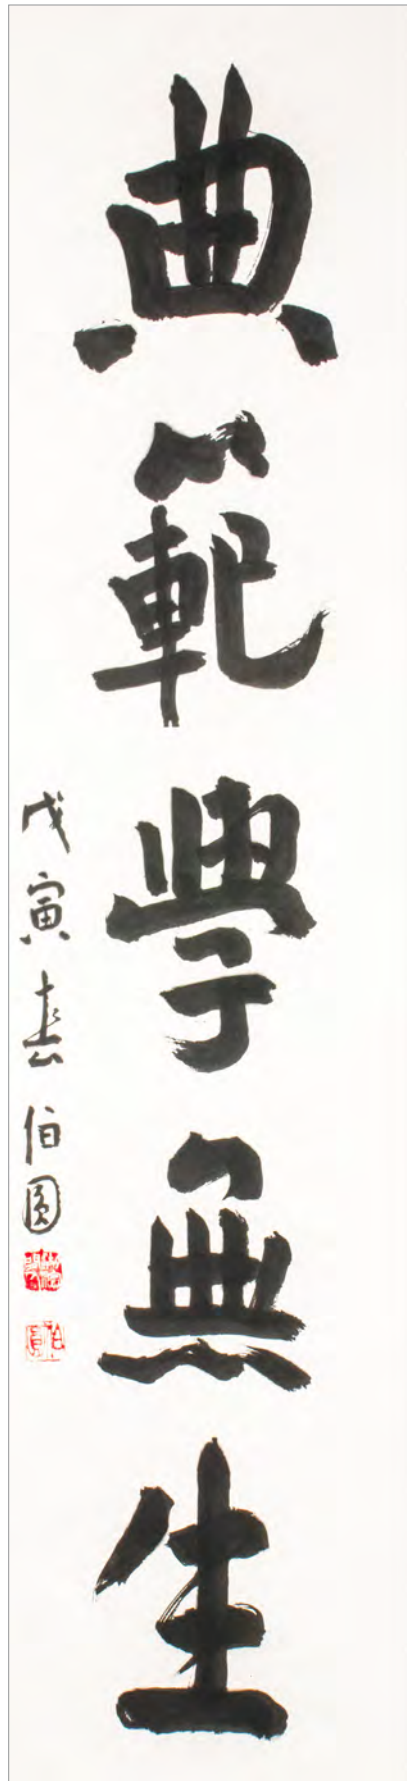 典範學無生
戊寅春伯圓